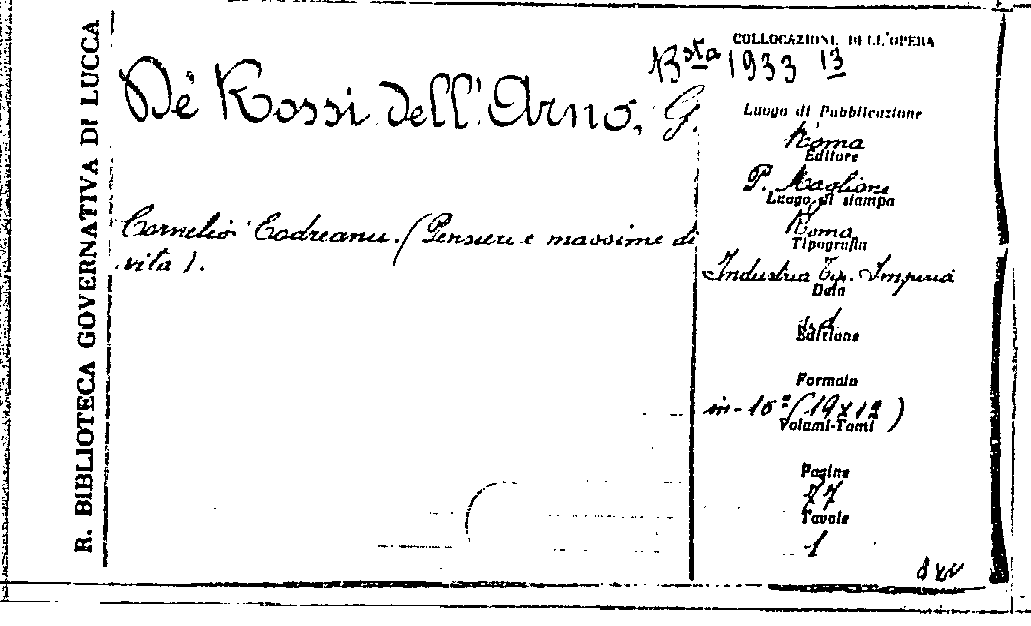 R. BIBLIOTECA GOVERNATIVA DI LUCCA
Dè Rossi dell'Arno, G.
Cornelio Codreanu. (Pensieri e massime di
vita).
COLLOCAZIONE DELL'OPERA
Bsta 1933 13
Luogo di Pubblicazione
Roma
Editore
P. Maglione
Luogo di stampa
Roma
Tipografia
Industria Tip. Imperia
Data
s. d.
Edizione
Formato
in-16º (19 x 12)
Volumi-Tomi
Pagine
77
Tavole
1